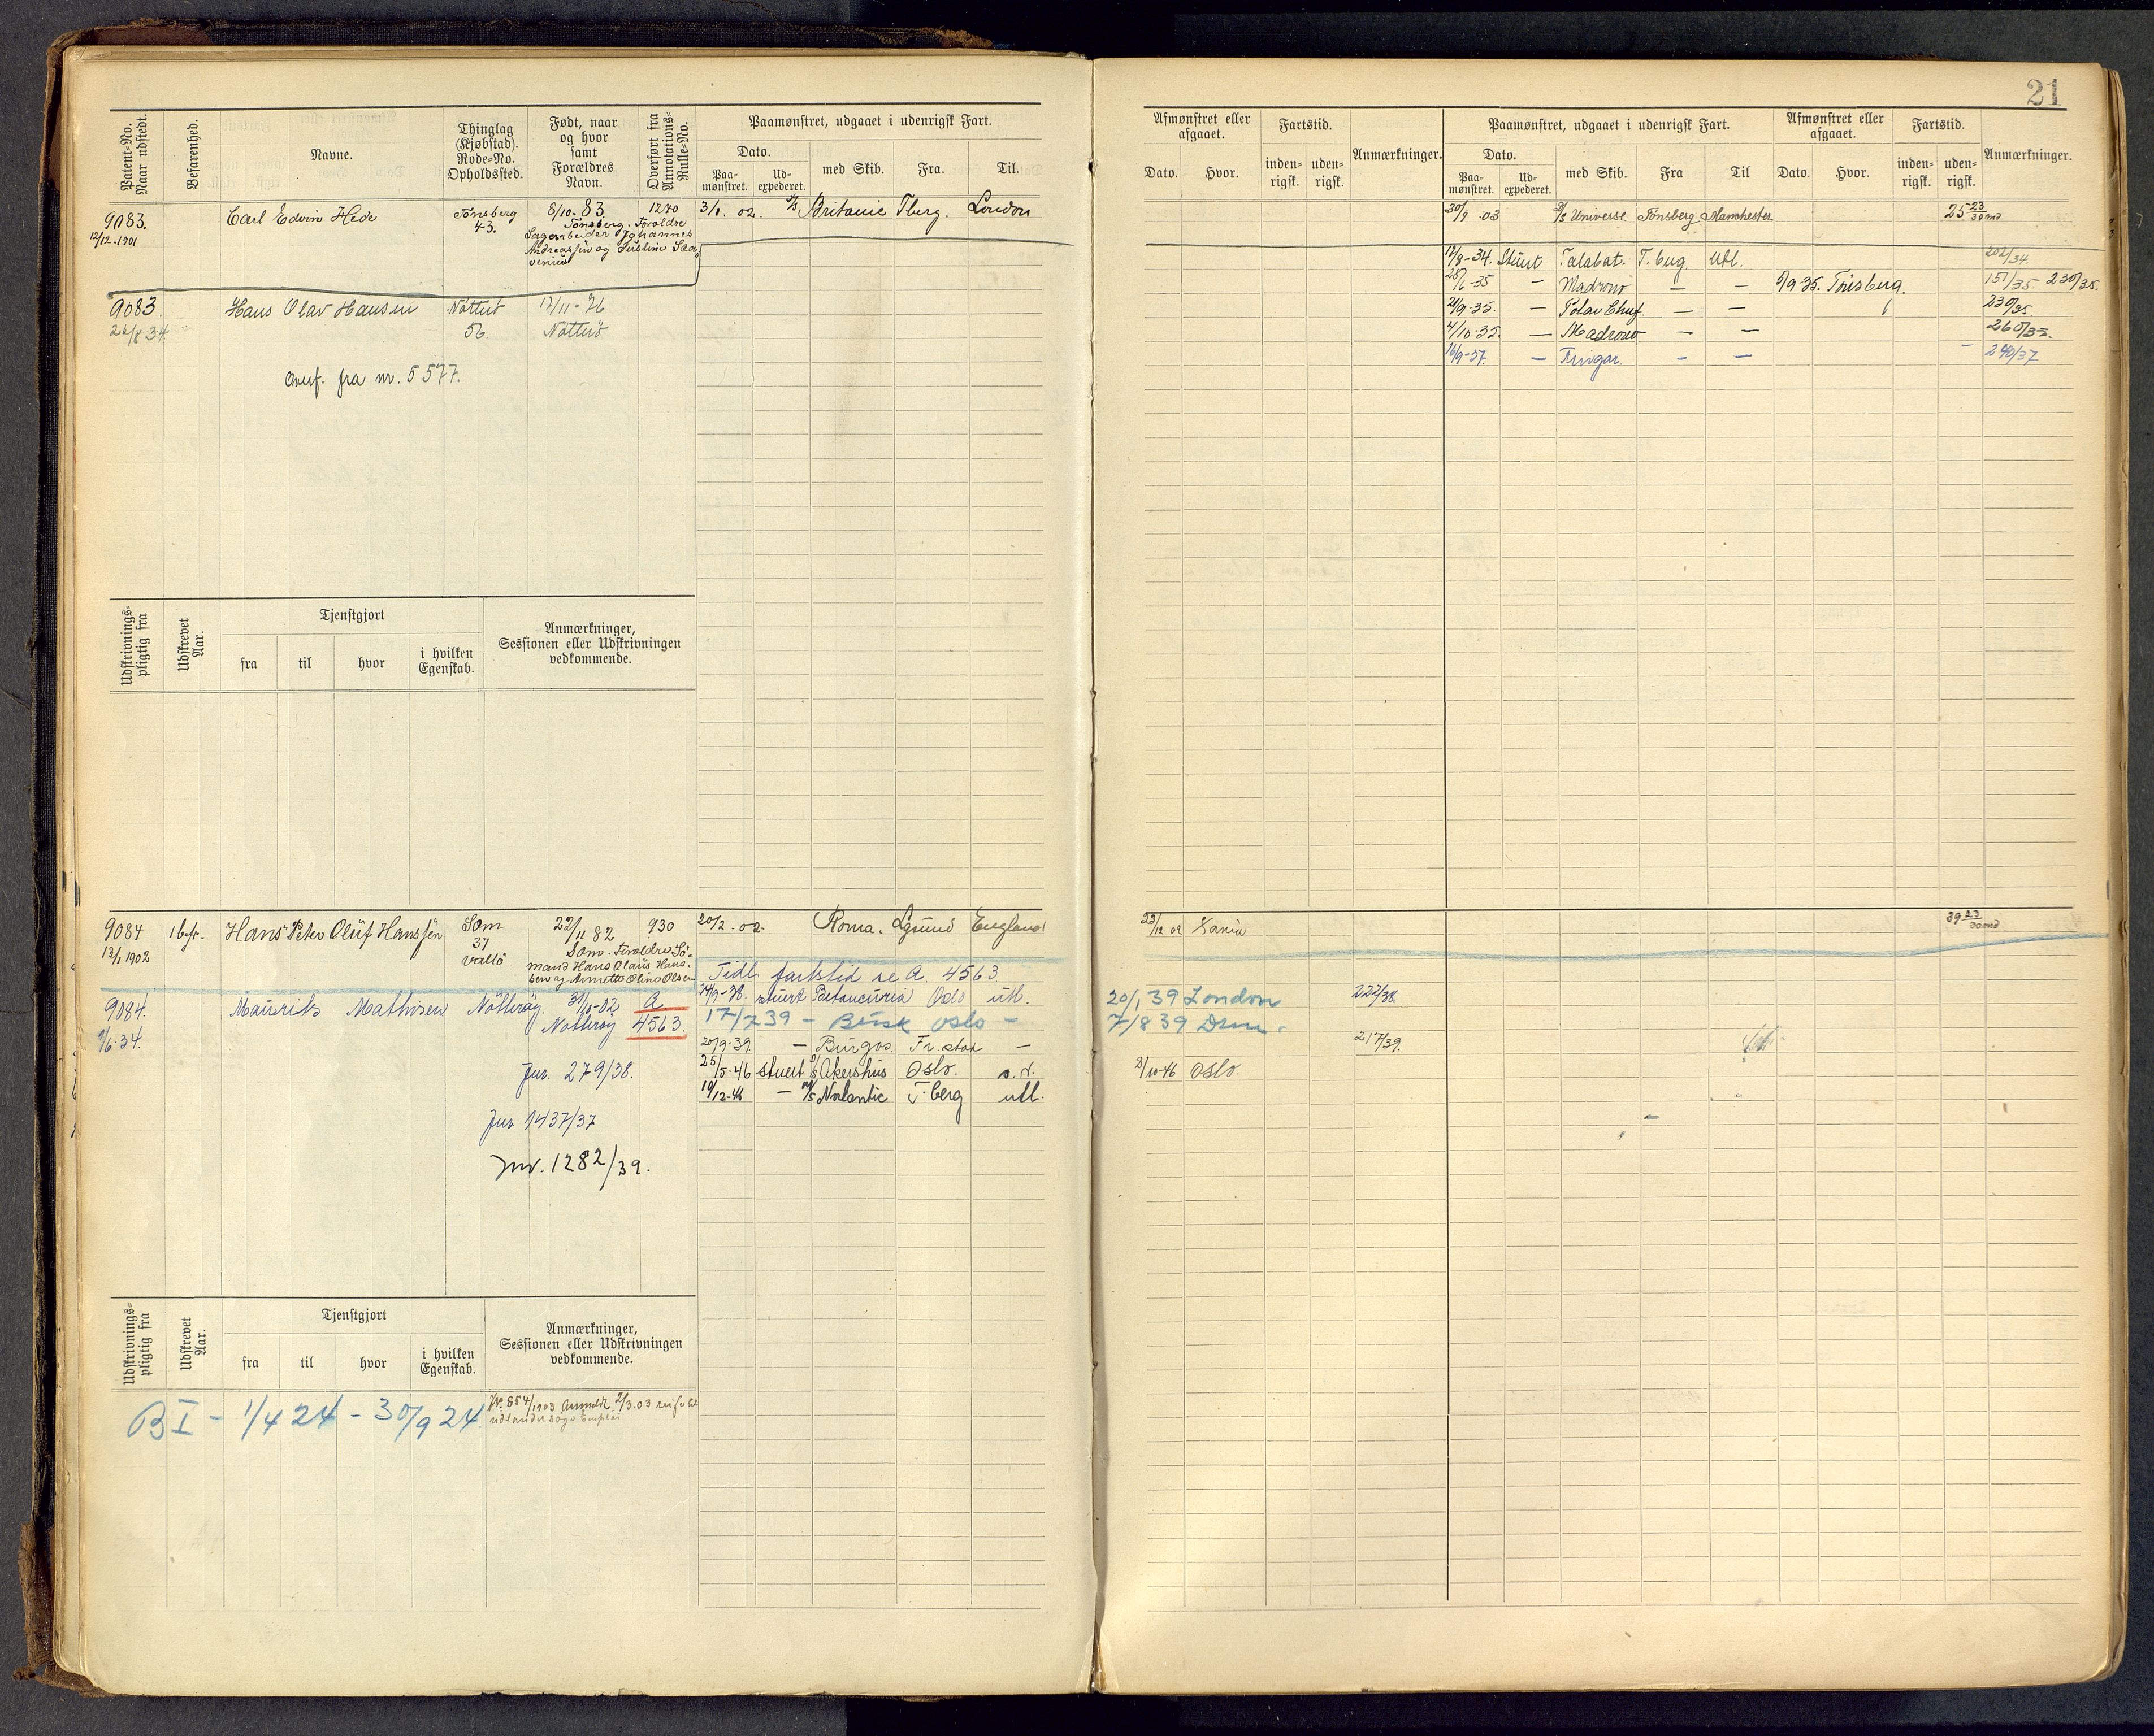 21
Patent-No. Naar udstedt.
Befarenhed.
Navne.
Thinglag (Kjøbstad). Rode-No. Opholdssted.
Født, naar og hvor samt Forældres Navn.
Overført fra Annotations-Rulle-No.
Paamønstret, udgaaet i udenrigsk Fart.
Dato.
Paa-mønstret.
Ud-expederet.
med Skib.
Fra.
Til.
Afmønstret eller afgaaet.
Dato.
Hvor.
Fartstid.
inden-rigsk.
uden-rigsk.
Anmærkninger.
Paamønstret, udgaaet i udenrigsk Fart.
Dato.
Paa-mønstret.
Ud-expederet.
med Skib.
Fra
Til
Afmønstret eller afgaaet.
Dato.
Hvor.
Fartstid.
inden-rigsk.
uden-rigsk.
Anmærkninger.
9083. Carl Edvin Hede Tønsberg 8/10-83 1270 3/1. 02. Britanie Tberg. London
12/12.1901 43. Tønsberg. Forældre
Johannes
Andreassen og
30/9 03 Universe Tønsberg Manchester 25 23/30 md
9083. Hans Olav Hansen 17/11-76
22/8 34. 56. Nøtterø
overf. fra nr. 5577.
17/8-34. Stuert Talabat. T.berg. Utl. 202/34.
28/6-35 — Madrono — — 5/9 35. Tønsberg. 151/35. 230/35.
21/9-35. — Polar Chief — — 230/35.
4/10-35. — Madrono — — 260/35.
16/9-37. — — — 240/37
Udskrivnings-pligtig fra
Udskrevet Aar.
Tjenstgjort
fra
til
hvor
i hvilken Egenskab.
Anmærkninger, Sessionen eller Udskrivningen vedkommende.
9084 1 bef. Hans Peter Oluf Hanssen Sem 22/11 82 930 20/2. 02. Roma. England
13/1 1902 37 Sem. Forældre Sø-
Vallø mand Hans Olaus Hans-
sen og Annette Oline Olsen
23/12 02 39 23/30 md
Tidl. fartstid se A. 4563
9084. Maurits Mathisen Nøtterøy. 31/10-02 A 24/9-38. stuert Betancuria Oslo utl.
1/6-34. Nøtterøy 4563. 17/7 39 — Oslo —
20/9-39. — Burgos Fr.stad —
Jur. 279/38. 25/5-46 stuert Akershus Oslo.
19/12-46 — M/S Norlantic T.berg utl.
Jur. 1437/37
Jnr. 1282/39.
20/1 39 London 222/38.
7/8 39
217/39.
2/10-46 Oslo.
Udskrivnings-pligtig fra
Udskrevet Aar.
Tjenstgjort
fra
til
hvor
i hvilken Egenskab.
Anmærkninger, Sessionen eller Udskrivningen vedkommende.
B I - 1/4 24 - 30/9 24